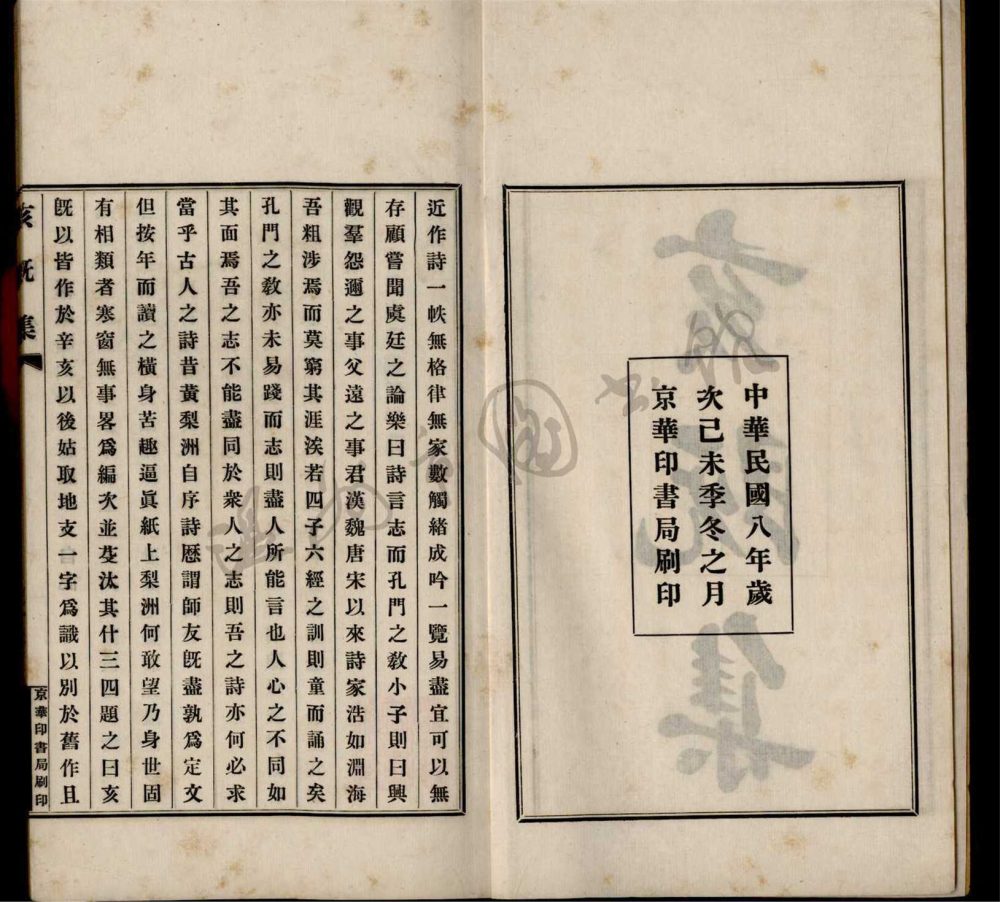 中華民國八年歲
次己未季冬之月
京華印書局刷印
近作詩一帙無格律無家數觸緒成吟一覽易盡宜可以無
存顧嘗聞虞廷之論樂曰詩言志而孔門之敎小子則曰興
觀羣怨邇之事父遠之事君漢魏唐宋以來詩家浩如淵海
吾粗涉焉而莫窮其涯涘若四子六經之訓則童而誦之矣
孔門之敎亦未易踐而志則盡人所能言也人心之不同如
其面焉吾之志不能盡同於衆人之志則吾之詩亦何必求
當乎古人之詩昔黃梨洲自序詩歷謂師友旣盡孰爲定文
但按年而讀之橫身苦趣逼眞紙上梨洲何敢望乃身世固
有相類者寒窗無事畧爲編次並芟汰其什三四題之曰亥
旣以皆作於辛亥以後姑取地支一字爲識以別於舊作且
亥旣集
京華印書局刷印